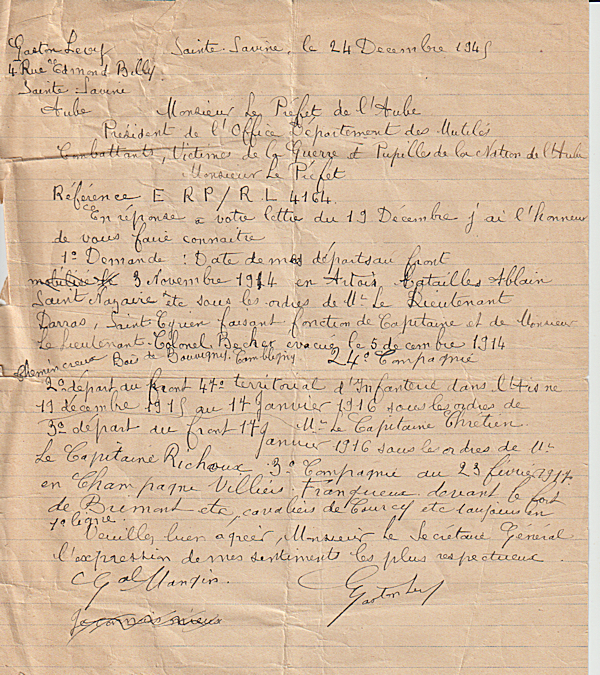 Gaston Levy Sainte-Savine, le 24 Decembre 1945
4 Rue Edmond Billy
Sainte-Savine
Aube Monsieur Le Préfet de l'Aube
Président de l'Office Département des Mutilés
Combattants, Victimes de la Guerre et Pupilles de la Nation de l'Aube
Monsieur Le Préfet
Référence E RP/R.L 4164
En réponse a votre lettre du 19 Décembre j'ai l'honneur
de vous faire connaitre
1º Demande : Date de mes départs au front
3 Novembre 1914 en Artois batailles Ablain
Saint Nazaire etc sous les ordres de Mr Le Lieutenant
Darras, Saint-Cyrien faisant fonction de Capitaine et de Monsieur
Le Lieutenant-Colonel Becher evacué le 5 decembre 1914
Chemin creux Bois de Bouvigny-Cambligny 24º Compagnie
2º départ au front 47º territorial d'Infanterie dans l'Aisne
19 décembre 1915 au 17 Janvier 1916 sous les ordres de
Mr Le Capitaine Chretien
3º départ au front 17 janvier 1916 sous les ordres de Mr
Le Capitaine Richoux 3º Compagnie au 23 février 1917
en Champagne Villiers-Franqueux devant le fort
de Brimont etc, cavaliers de Courcy etc toujours en
1º ligne.
Veuillez bien agréer, Monsieur le Secrétaire Général
l'expression de mes sentiments les plus respectueux
C Gal Mangin. Gaston Levy